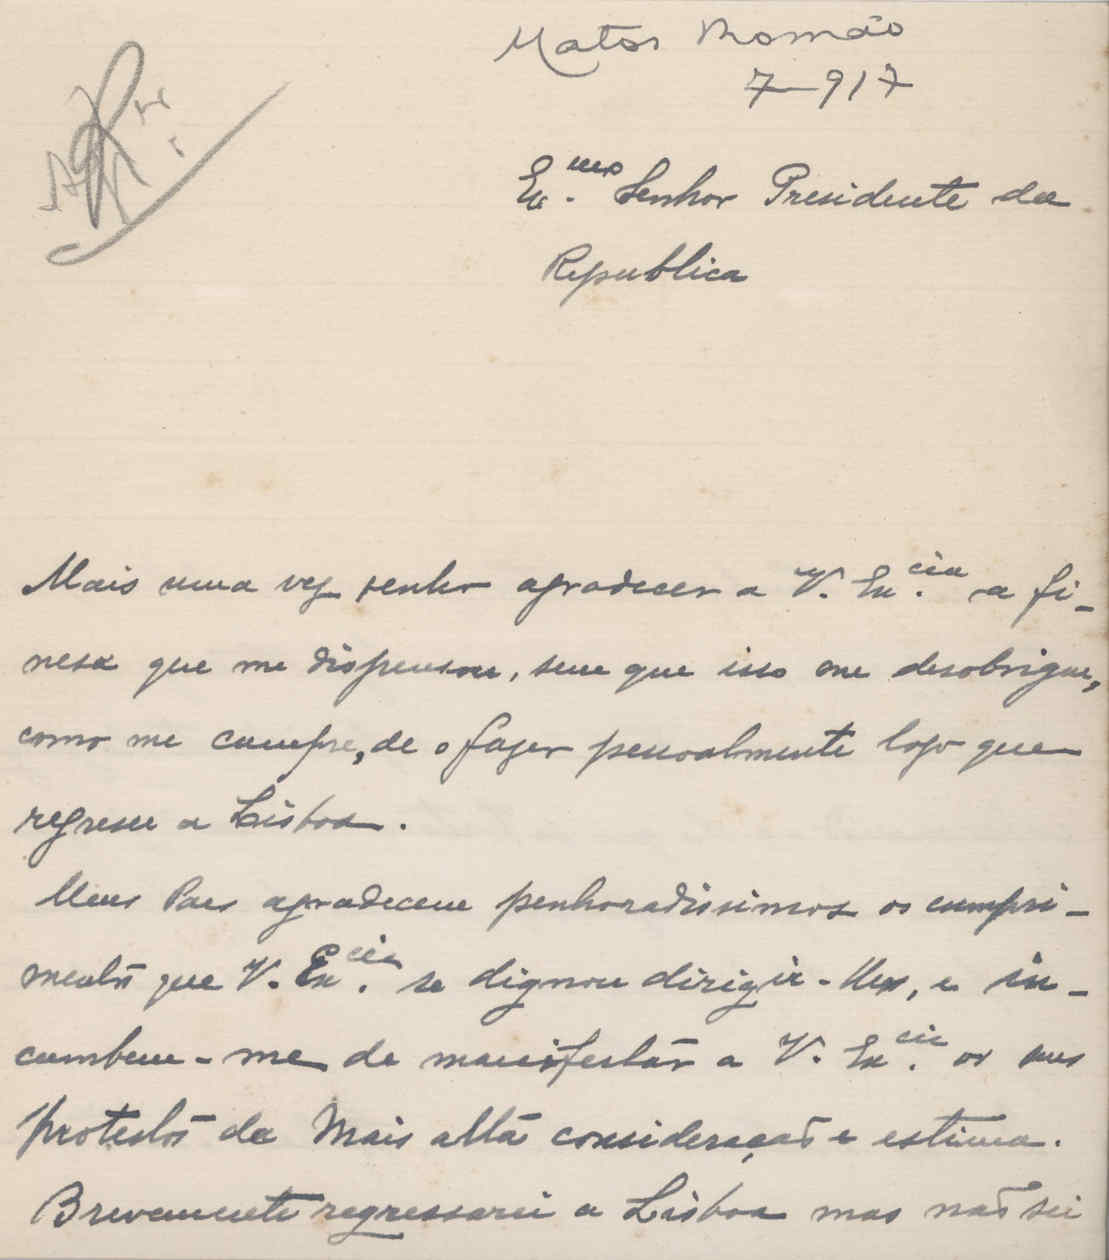 Matos Romão
7-917
Ex.mo Senhor Presidente da
Republica
Mais uma vez tenho agradecer a V. Ex.cia a fi-
nesa que me dispensou, sem que isso me desobrigue,
como me cumpre, de o fazer pessoalmente logo que
regresse a Lisboa.
Meus Paes agradecem penhoradissimos os cumpri-
mentos que V. Ex.cia se dignou dirigir-lhes, e in-
cumbem-me de manifestar a V. Ex.cia os seus
protestos da Mais alta consideração e estima.
Brevemente regressarei a Lisboa mas não sei